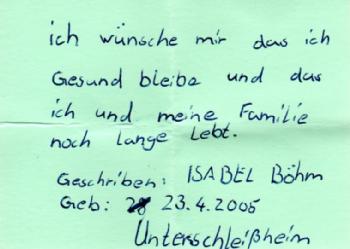 ich wünsche mir das ich
Gesund bleibe und das
ich und meine Familie
noch lange lebt.
Geschriben: ISABEL Böhm
Geb: 23.4.2005
Unterschleißheim